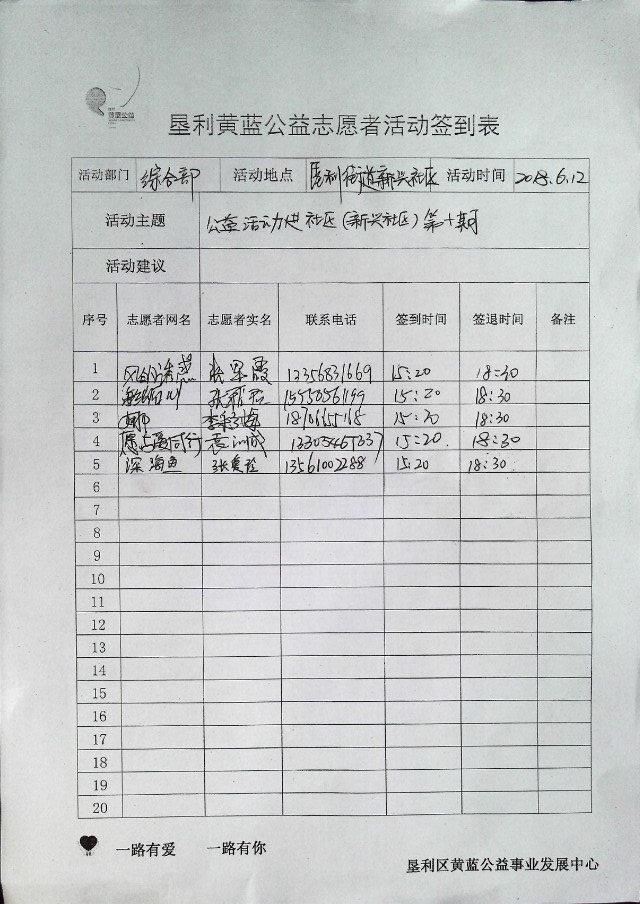 黄蓝公益
垦利黄蓝公益志愿者活动签到表
活动部门 综合部 活动地点 垦利街道新兴社区 活动时间 2018.6.12
活动主题 公益活动进社区(新兴社区)第十期
活动建议
序号 志愿者网名 志愿者实名 联系电话 签到时间 签退时间 备注
1 张翠霞 12356831669 15:20 18:30
2 15:20 18:30
3 15:20 18:30
4 愿与爱同行 15:20 18:30
5 深海鱼 13561002288 15:20 18:30
6
7
8
9
10
11
12
13
14
15
16
17
18
19
20
一路有爱 一路有你
垦利区黄蓝公益事业发展中心